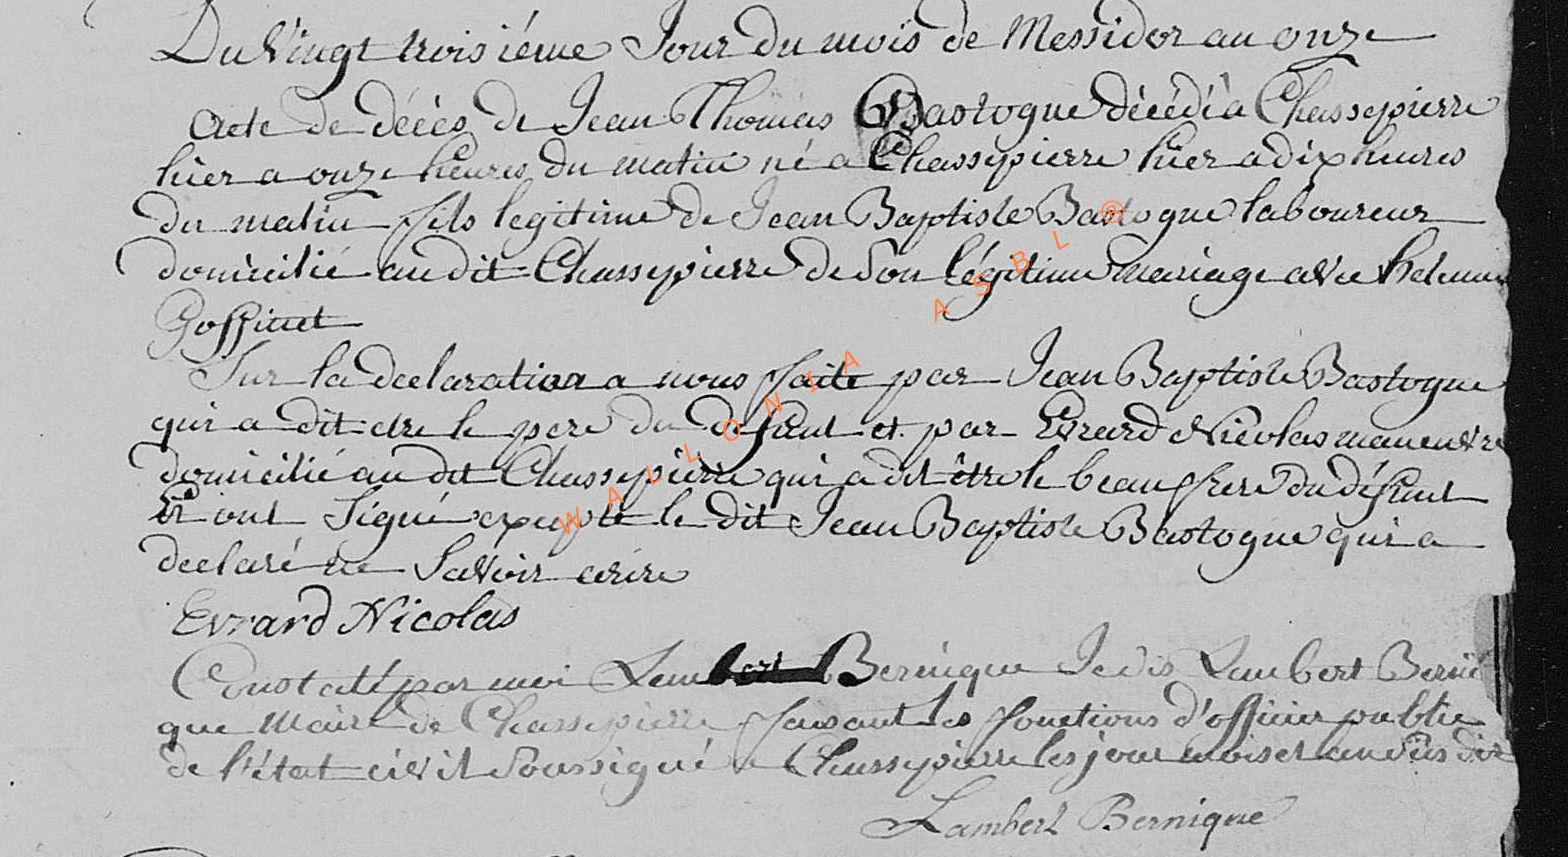 Du Vingt troisiéme Jour du mois de Messidor an onze
Acte de décés de Jean Thomas Bastogne décédé à Chassepierre
hier a onze heures du matin né a Chassepierre hier a dix heures
du matin fils legitime de Jean Baptiste Bastogne laboureur
domicilié au dit Chassepierre de Son légitime mariage avec helenne
Goffinet
Sur la declaration a nous faite par Jean Baptiste Bastogne
qui a dit etre le pere du defunt et par Evrard Nicolas maneuvre
domicilié au dit Chassepierre qui a dit être le beau frere du défunt
Et ont Signé excepté le dit Jean Baptiste Bastogne qui a
declaré ne Savoir ecrire
Evrard Nicolas
Constaté par moi Lambert Bernique Je dis Lambert Berni
que Maire de Chassepierre faisant les fonctions d'officier public
de l'état civil Soussigné a Chassepierre les jour mois et an dit
Lambert Bernique
WALLONIA ASBL ©